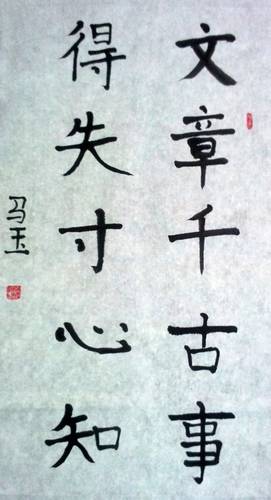 文章千古事
得失寸心知
马玉